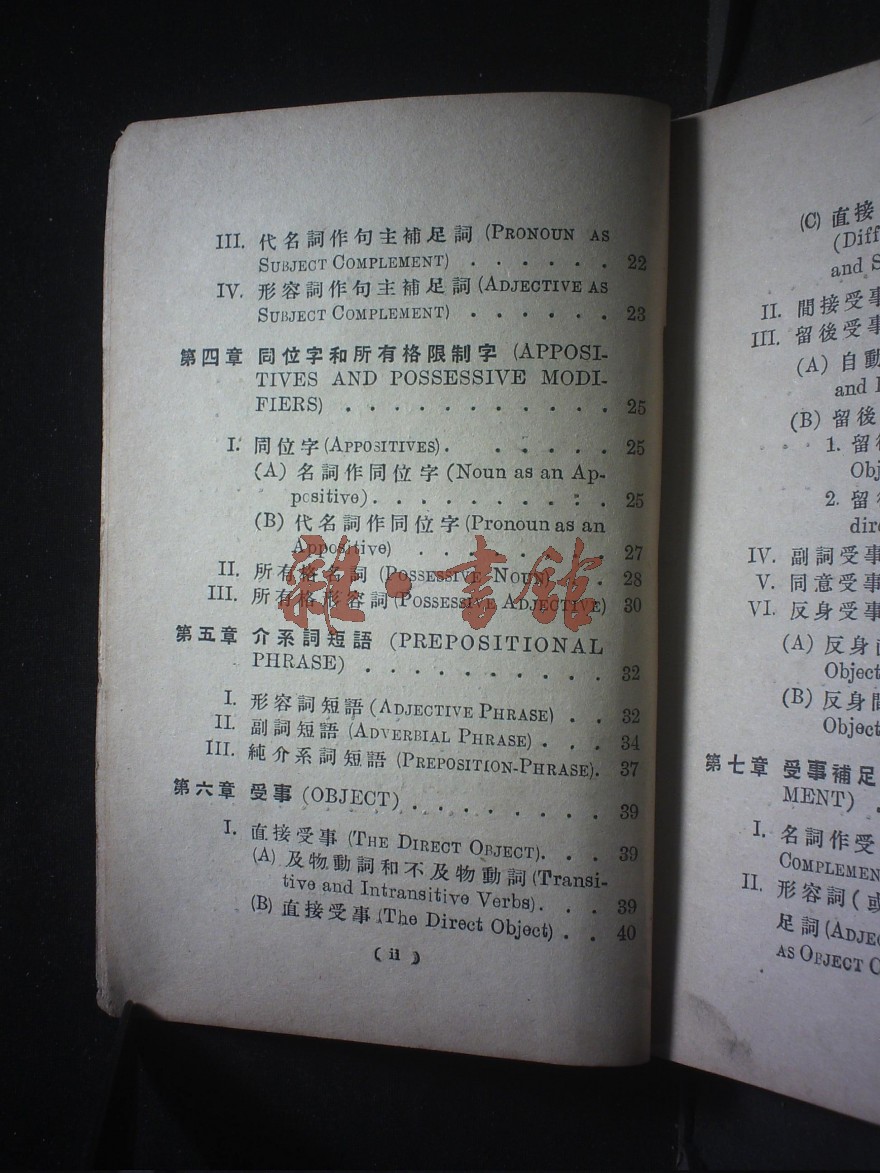 III. 代名詞作句主補足詞 (PRONOUN AS
SUBJECT COMPLEMENT) . . . . . . 22
IV. 形容詞作句主補足詞 (ADJECTIVE AS
SUBJECT COMPLEMENT) . . . . . . 23
第四章 同位字和所有格限制字 (APPOSI-
TIVES AND POSSESSIVE MODI-
FIERS) . . . . . . . . . . . 25
I. 同位字 (APPOSITIVES). . . . . . . 25
(A) 名詞作同位字 (Noun as an Ap-
positive). . . . . . . . . . 25
(B) 代名詞作同位字 (Pronoun as an
Appositive) . . . . . . . . 27
II. 所有格名詞 (POSSESSIVE NOUN) . . 28
III. 所有格形容詞 (POSSESSIVE ADJECTIVE) 30
第五章 介系詞短語 (PREPOSITIONAL
PHRASE) . . . . . . . . . . 32
I. 形容詞短語 (ADJECTIVE PHRASE) . . 32
II. 副詞短語 (ADVERBIAL PHRASE) . . . 34
III. 純介系詞短語 (PREPOSITION-PHRASE). 37
第六章 受事 (OBJECT) . . . . . . . . 39
I. 直接受事 (THE DIRECT OBJECT). . . 39
(A) 及物動詞和不及物動詞 (Transi-
tive and Intransitive Verbs). . . 39
(B) 直接受事 (The Direct Object) . . 40
( ii )
雜·書館
(C) 直接
(Diff
and S
II. 間接受事
III. 留後受事
(A) 自動
and
(B) 留後
1. 留後
Obj
2. 留
dire
IV. 副詞受事
V. 同意受事
VI. 反身受事
(A) 反身
Object
(B) 反身間
Object
第七章 受事補足
MENT) .
I. 名詞作受
COMPLEMEN
II. 形容詞 (或
足詞 (ADJE
AS OBJECT C